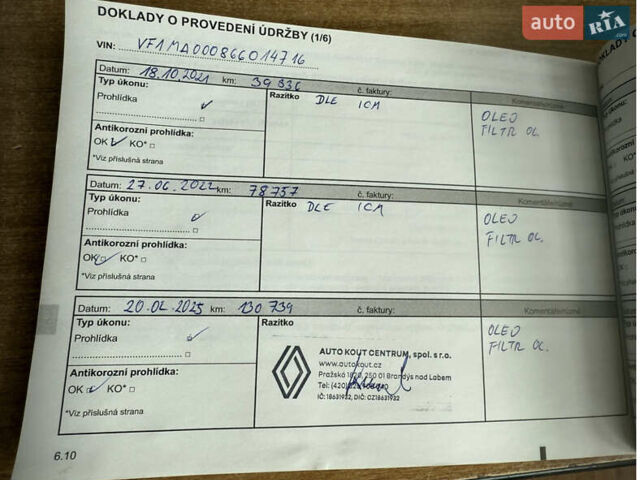 auto RIA.com
DOKLADY O PROVEDENÍ ÚDRŽBY (1/6)
VIN: VF1MA000866014716
Datum: 18.10.2021 km: 39 336 č. faktury:
Typ úkonu: Razítko DLE ICM
Prohlídka
OLEJ
FILTR OL.
Antikorozní prohlídka:
OK KO*
*Viz příslušná strana
Datum: 27.06.2022 km: 78757 č. faktury:
Typ úkonu: Razítko DLE ICM
Prohlídka
OLEJ
FILTR OL.
Antikorozní prohlídka:
OK KO*
*Viz příslušná strana
Datum: 20.02.2025 km: 130 739 č. faktury:
Typ úkonu: Razítko
Prohlídka
OLEJ
FILTR OL.
AUTO KOUT CENTRUM, spol. s r.o.
www.autokout.cz
Pražská 1820, 250 01 Brandýs nad Labem
Tel: (420)
IČ: 18631932, DIČ: CZ18631932
Antikorozní prohlídka:
OK KO*
*Viz příslušná strana
6.10